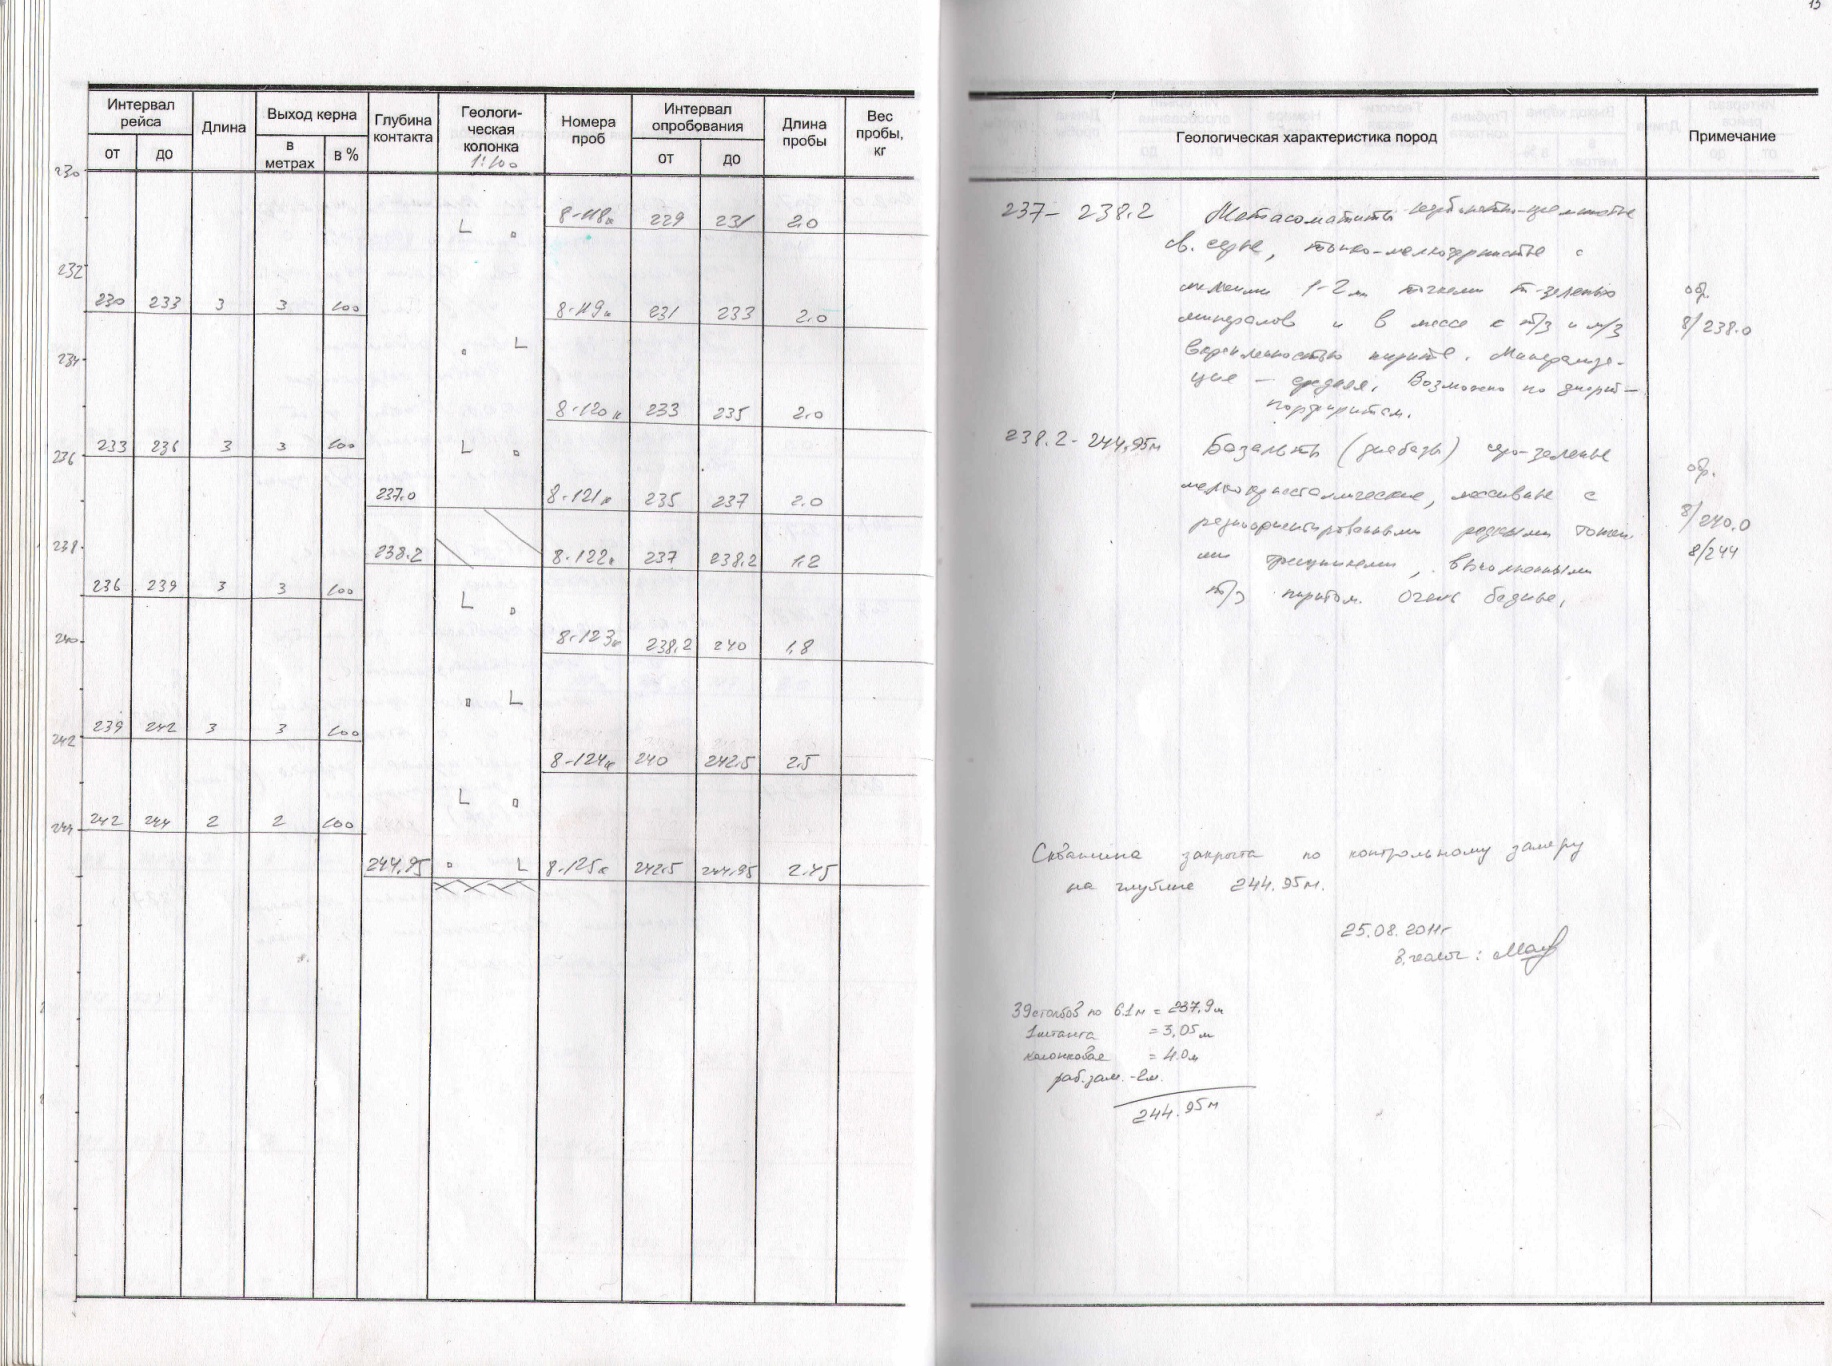 15
Интервал рейса
Длина
Выход керна
Глубина контакта
Геологическая колонка
1:100
Номера проб
Интервал опробования
Длина пробы
Вес пробы, кг
от до в метрах в % от до
230
8-118к 229 231 2.0
232
230 233 3 3 100 8-119к 231 233 2.0
234
8-120к 233 235 2.0
233 236 3 3 100
236
237.0 8-121к 235 237 2.0
238
238.2 8-122к 237 238.2 1.2
236 239 3 3 100
240
8-123к 238.2 240 1.8
239 242 3 3 100
242
8-124к 240 242.5 2.5
242 244 2 2 100
244
244.95 8-125к 242.5 244.95 2.45
Геологическая характеристика пород
Примечание
237- 238.2 Метасоматиты
св. серые, тонко-мелкозернистые с
мелкими 1-2 м точками т-зеленых
минералов и в массе с т/з и м/з
вкрапленностью пирита. Минерализа-
ция - средняя. Возможно по диорит-
порфиритам.
обр.
8/238.0
238.2- 244,95м Базальты (диабазы) серо-зеленые
мелкокристаллические, массивные с
разноориентированными редкими тонки-
ми трещинами, выполненными
т/з пиритом. Очень бедные,
обр.
8/240.0
8/244
Скважина закрыта по контрольному замеру
на глубине 244.95м.
25.08.2011г
39 столбов по 6.1м = 237,9м
1 штанга = 3,05м
колонковая = 4.0м
раб. зам. -2м.
244.95м